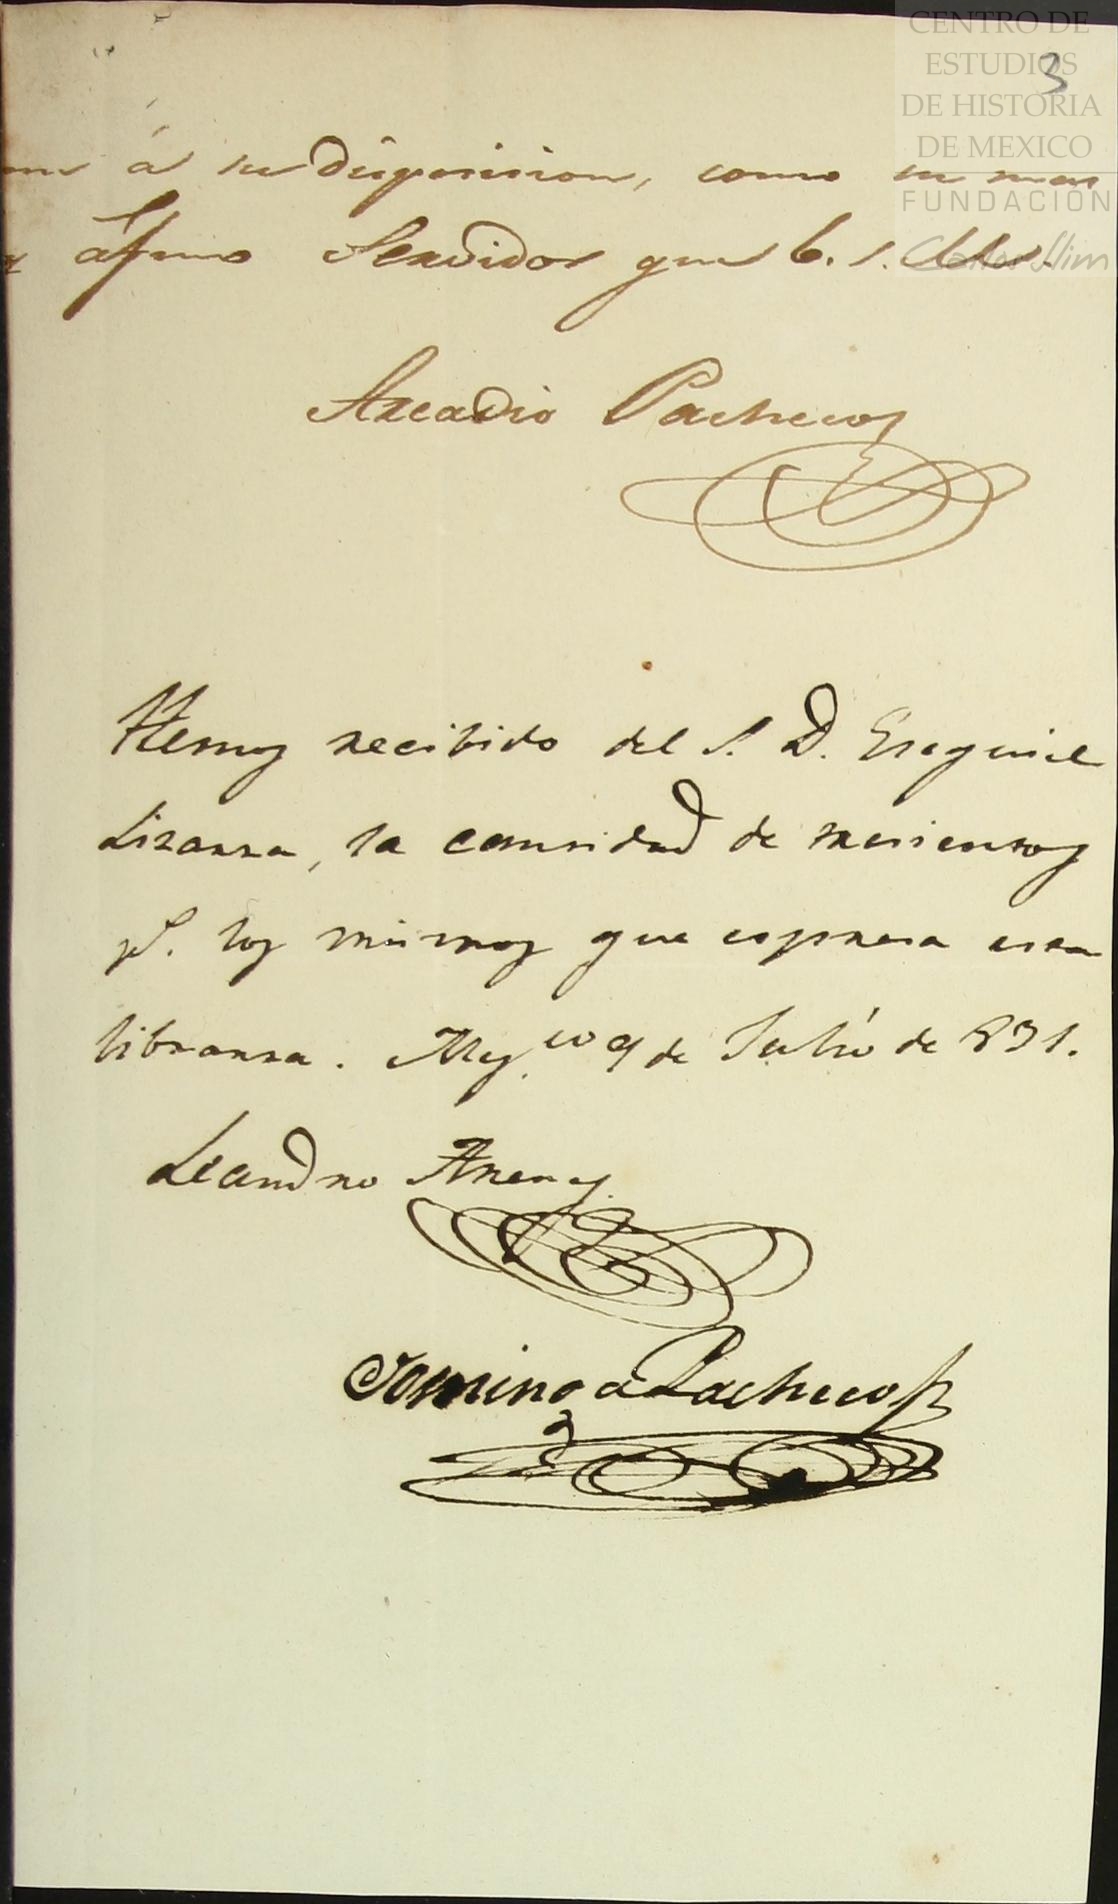 CENTRO DE
ESTUDIOS
DE HISTORIA
DE MEXICO
FUNDACIÓN
Carlos Slim
3
á su disposicion, como su mas
áfmo Servidor que b. s. m.
Arcadio Pacheco
Hemos recibido del S. D. Esequiel
Lisarra, la cantidad de
pS. los mismos que espresa esta
libransa. Mej.co 9 de Julio de 831.
Leandro Arenas
Domingo Pacheco